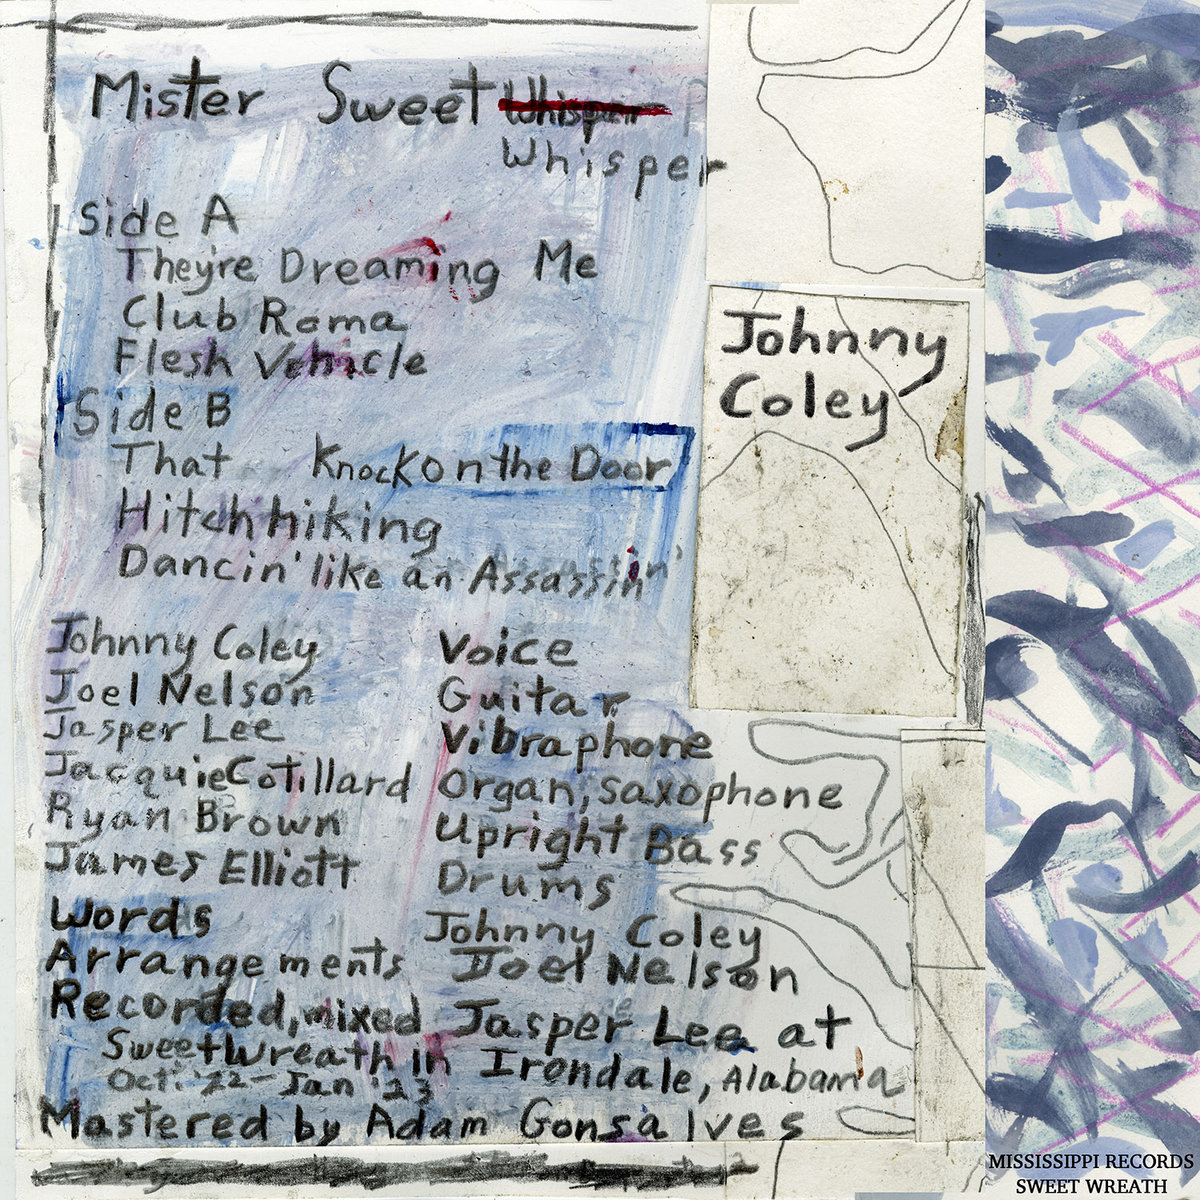 Mister Sweet Whisper
Whisper
Side A
They're Dreaming Me
Club Roma
Flesh Vehicle
Side B
That Knock on the Door
Hitchhiking
Dancin' like an Assassin'
Johnny Coley Voice
Joel Nelson Guitar
Jasper Lee Vibraphone
Jacquie Cotillard Organ, saxophone
Ryan Brown Upright Bass
James Elliott Drums
Words Johnny Coley
Arrangements Joel Nelson
Recorded, mixed Jasper Lee at
Sweet Wreath in Irondale, Alabama
Oct. '22 - Jan '23
Mastered by Adam Gonsalves
Johnny
Coley
MISSISSIPPI RECORDS
SWEET WREATH